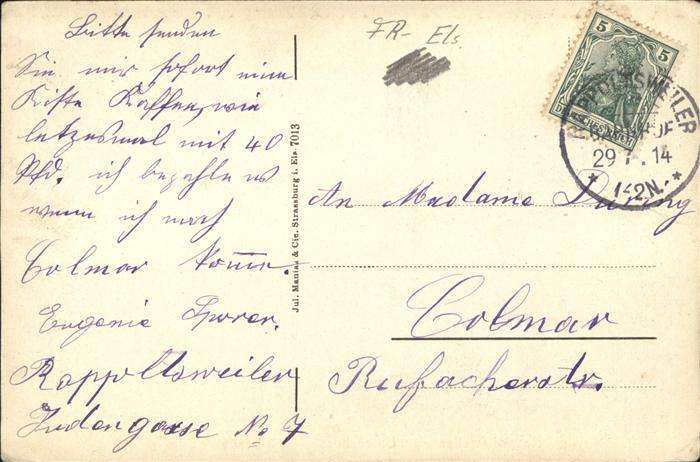 Bitte senden
Sie mir sofort eine
Kiste Kaffee, wie
letzesmal mit 40
Pfd. ich bezahle es
wenn ich nach
Colmar komme.
Eugenie Sporer.
Rappoltsweiler
Judengasse No 7
Jul. Manias & Cie. Strassburg i. Els. 7013
FR- Els.
5 5
RAPPOLTSWEILER
29 14
1-2N.
An Madame
Colmar
Rufacherstr.